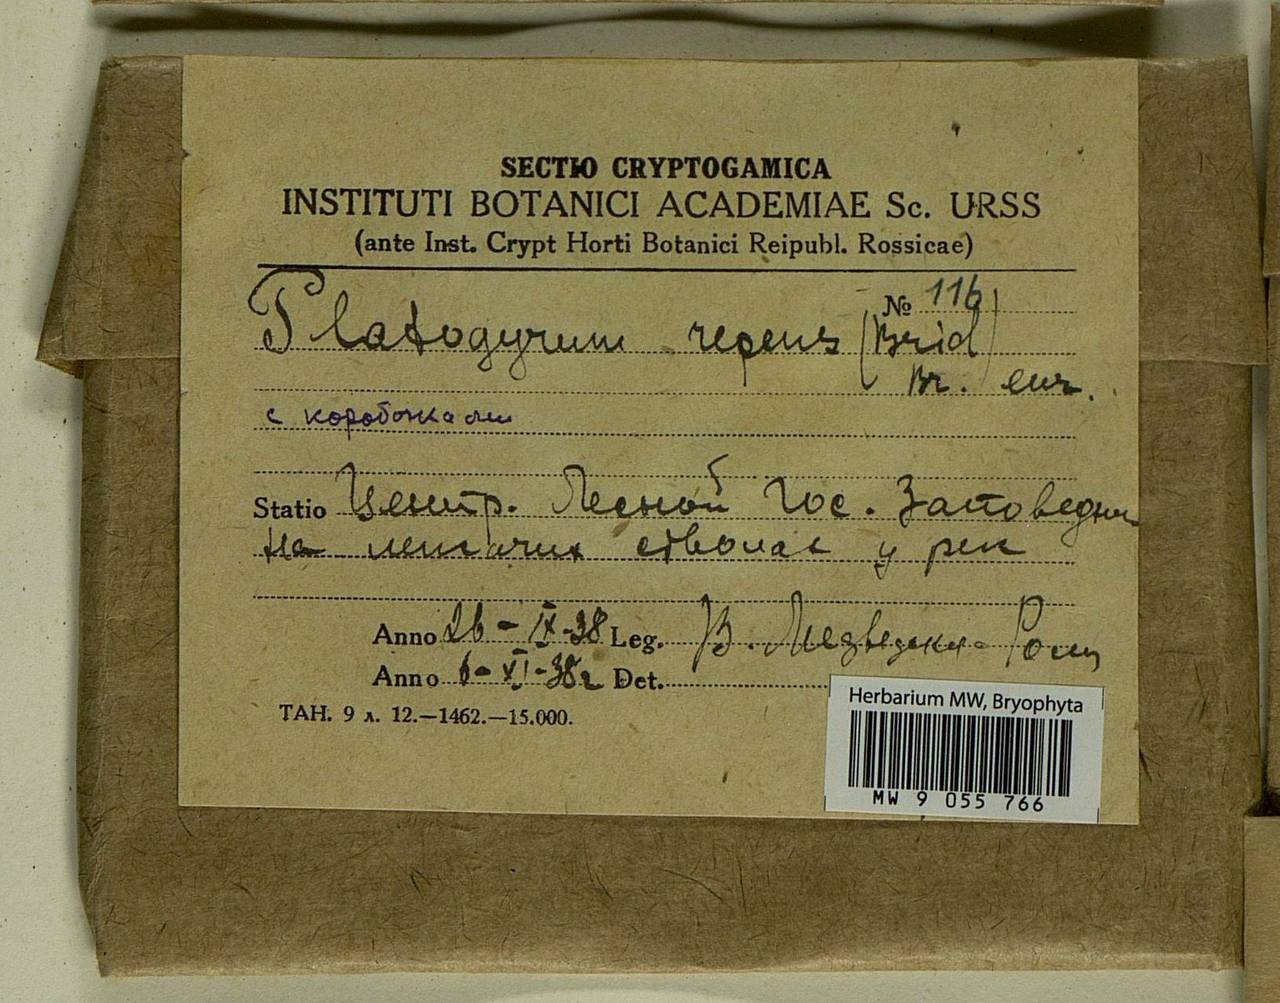 SECTIO CRYPTOGAMICA
INSTITUTI BOTANICI ACADEMIAE Sc. URSS
(ante Inst. Crypt Horti Botanici Reipubl. Rossicae)
№ 116
Platogyrum repens (Brid)
Br. eur.
с коробочками
Statio Центр. Лесной Гос. Заповедник
На лежачих стволах у рек
Anno 26-IX-38 Leg. В. Медведки-
Anno 6-XI-38г Det.
ТАН. 9 л. 12.—1462.—15.000.
Herbarium MW, Bryophyta
MW 9 055 766